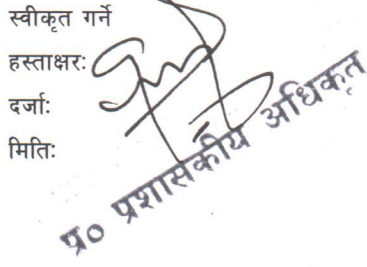 स्वीकृत गर्ने
हस्ताक्षर:
दर्जा:
मिति:
प्र० प्रशासकीय अधिकृत